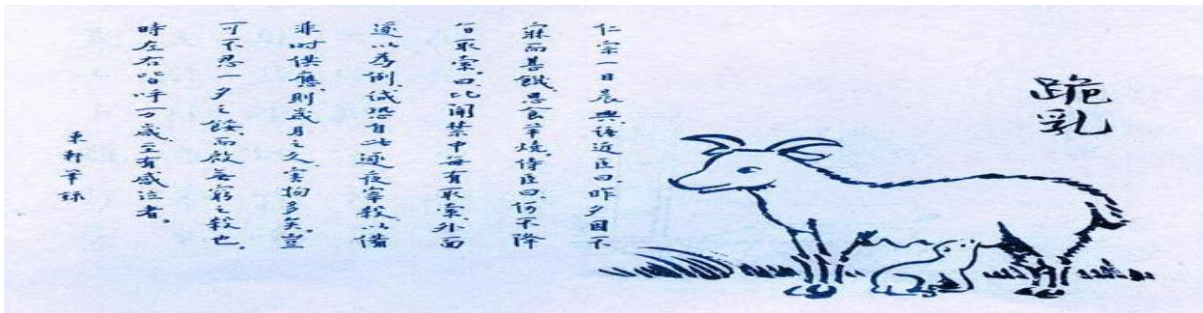 跪乳
仁宗一日晨興語近臣曰昨夕因不
寐而甚饑思食羊燒侍臣曰何不降
旨取索曰比聞禁中每有取索外面
遂以為例誠恐自此逐夜宰殺以備
非時供應則歲月之久害物多矣豈
可不忍一夕之餒而啟無窮之殺也
時左右皆呼萬歲至有感泣者。
東軒筆錄